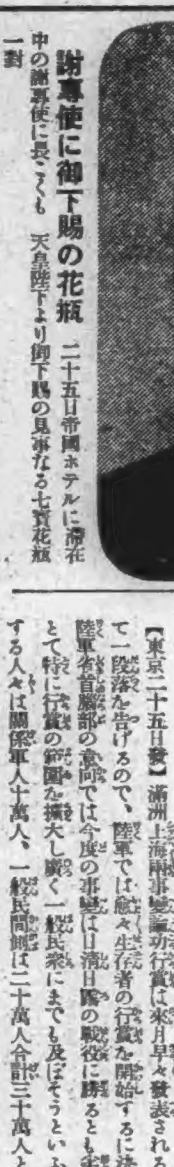 謝專使に御下賜の花瓶 二十五日帝國ホテルに滯在
中の謝專使に畏こくも 天皇陛下より御下賜の見事なる七寳花瓶
一對
【東京二十五日發】滿洲上海兩事變論功行賞は來月早々發表される
て一段落を告げるので、陸軍では愈々生存者の行賞を開始するに決
陸軍省首腦部の意向では今度の事變は日淸日露の戰役に勝るとも
とて特に行賞の範圍を擴大し廣く一般民衆にまでも及ぼそうといふ
する人々は關係軍人十萬人、一般民間側は二十萬人合計三十萬人と